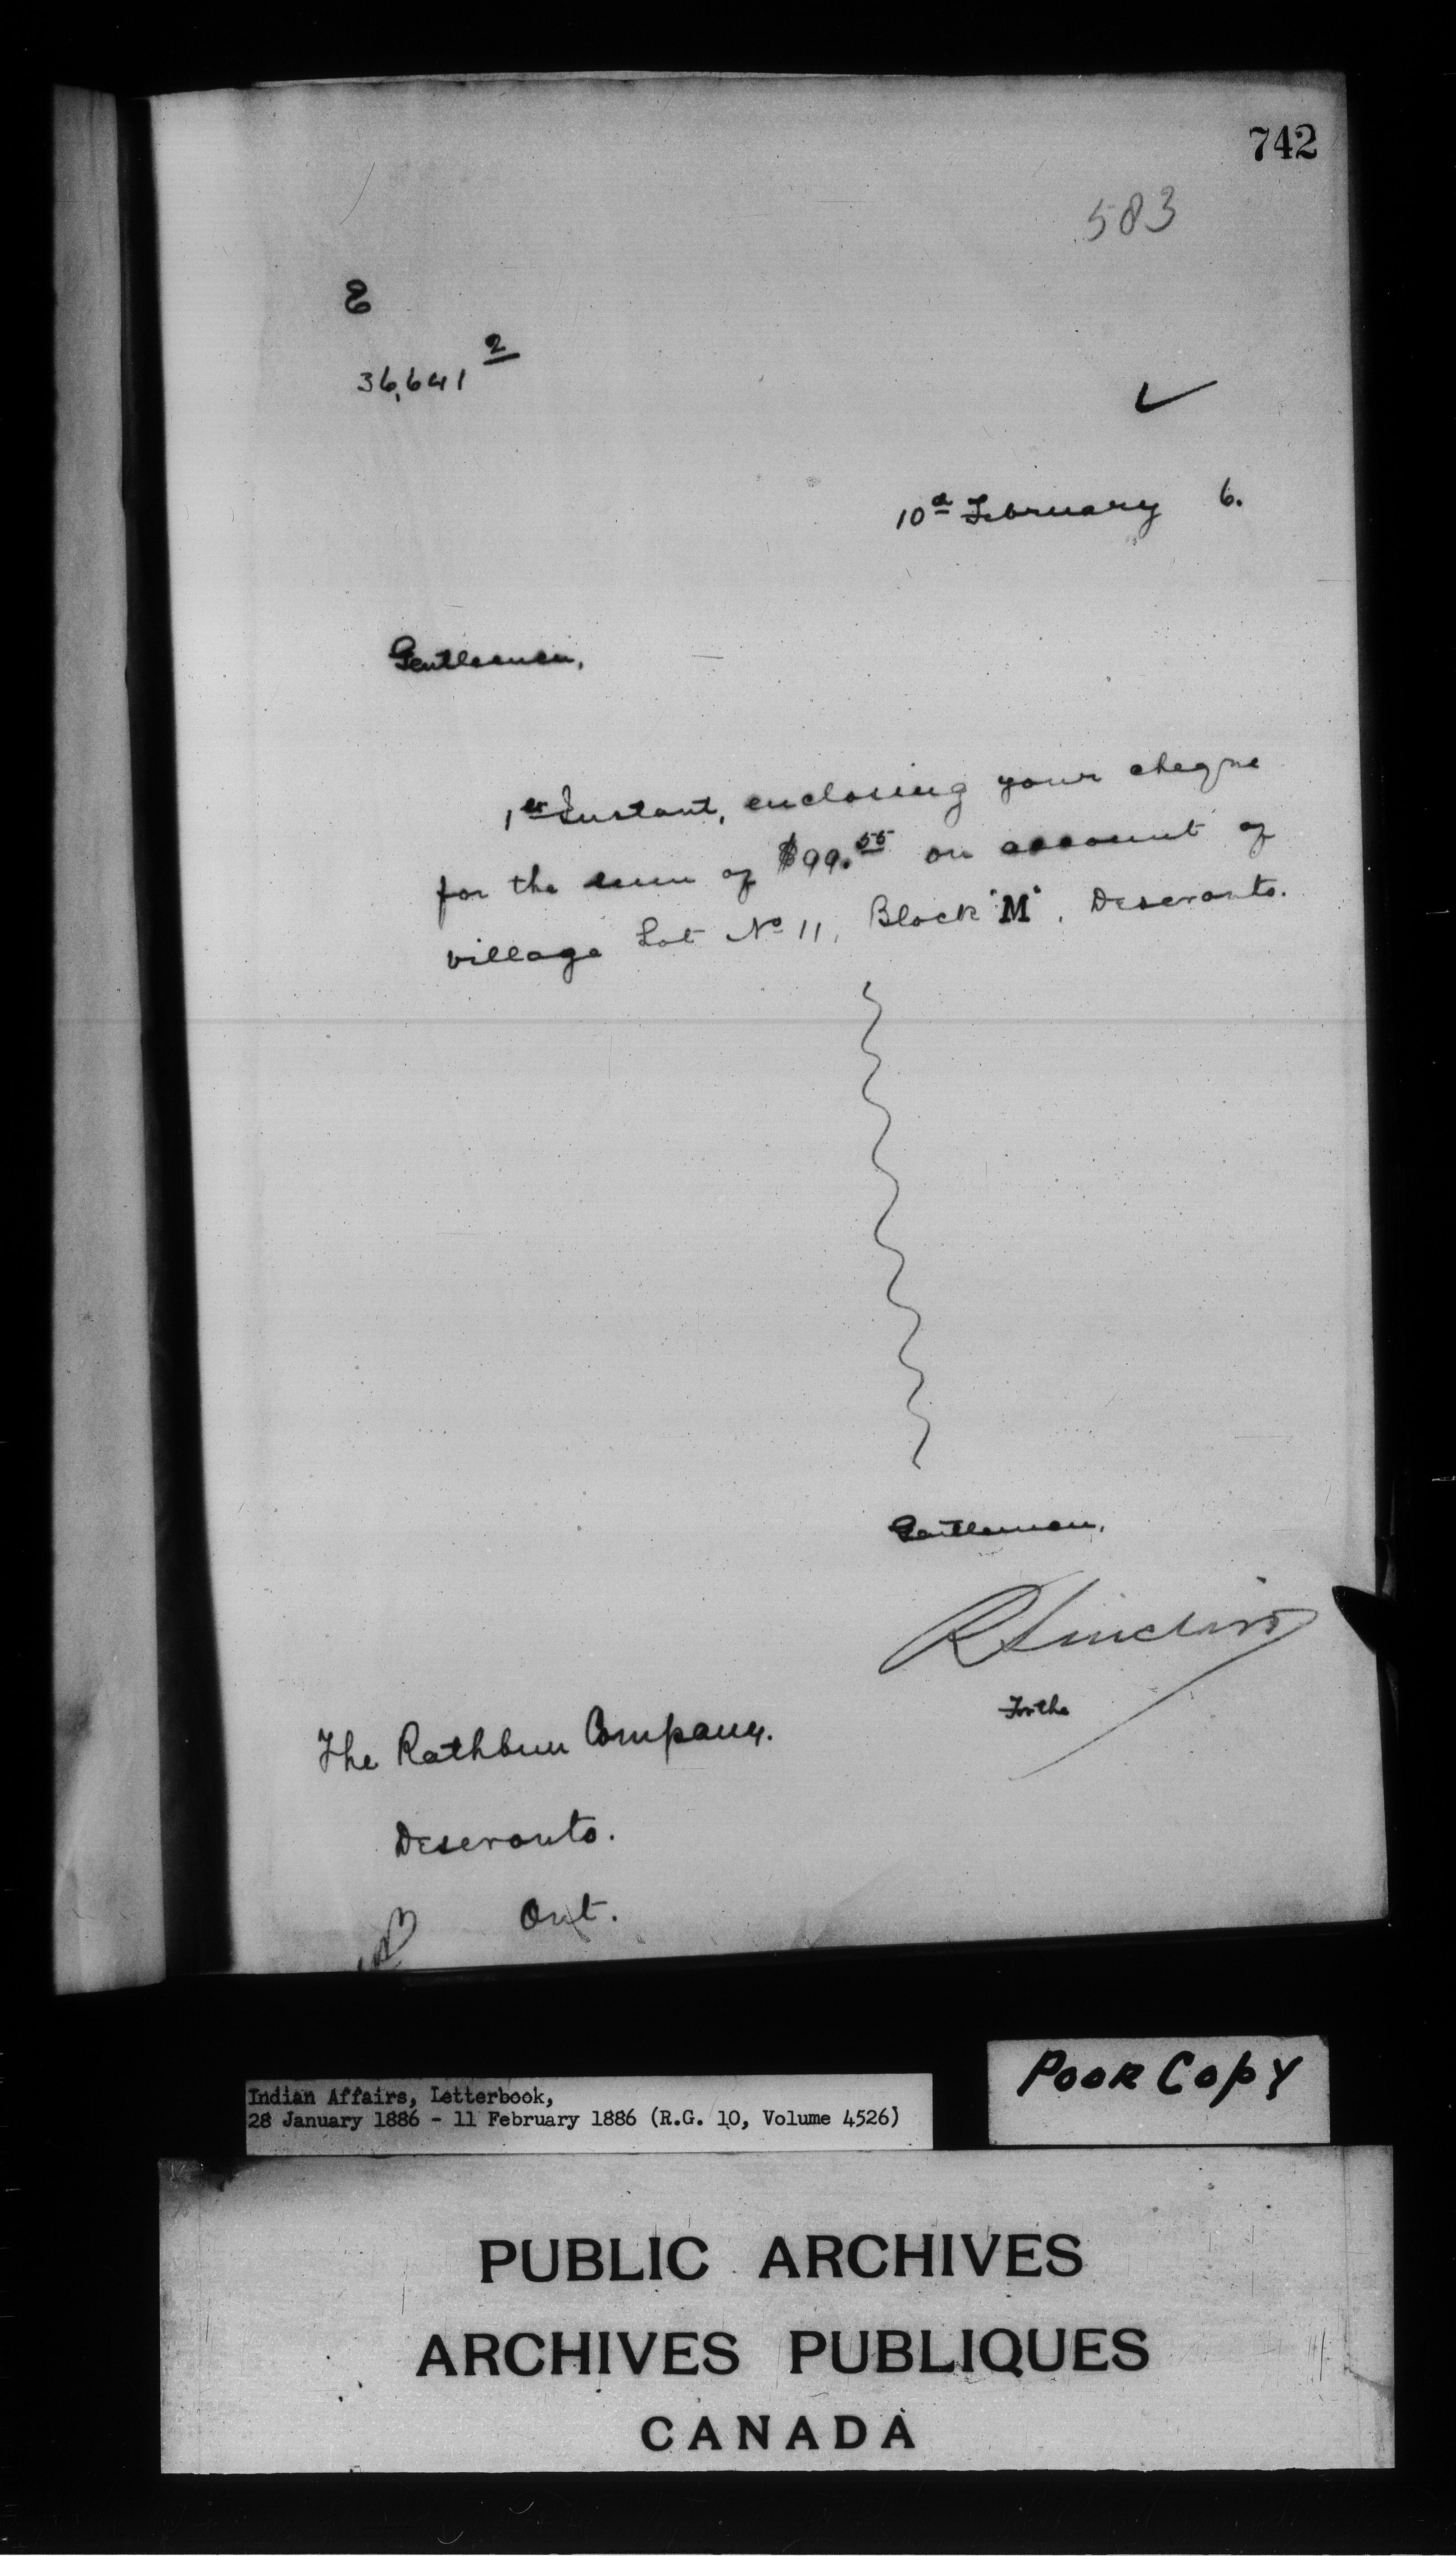 742
583
E
36,641 2
10th February 6.
Gentlemen,
1st Instant, enclosing your cheque
for the sum of $99.55 on account of
village Lot No 11, Block "M", Deseronto.
Gentlemen,
R Sinclair
For the
The Rathbun Company.
Deseronto.
Ont.
Indian Affairs, Letterbook,
28 January 1886 - 11 February 1886 (R.G. 10, Volume 4526)
POOR COPY
PUBLIC ARCHIVES
ARCHIVES PUBLIQUES
CANADA